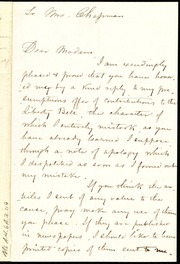 To Mrs. Chapman
Dear Madam
I am exceedingly
pleased & proud that you have honor-
ed me by a kind reply to my pre-
sumptious offer of contributions to the
Liberty Bell, the character of
which I entirely mistook, as you
have already learned I suppose
through a note of apology which
I despatched as soon as I found out
my mistake.
If you think the ar-
ticles I sent of any value to the
cause, pray make any use of them
you please. If they are published
in newspapers I should like to have
printed copies of them sent to me.